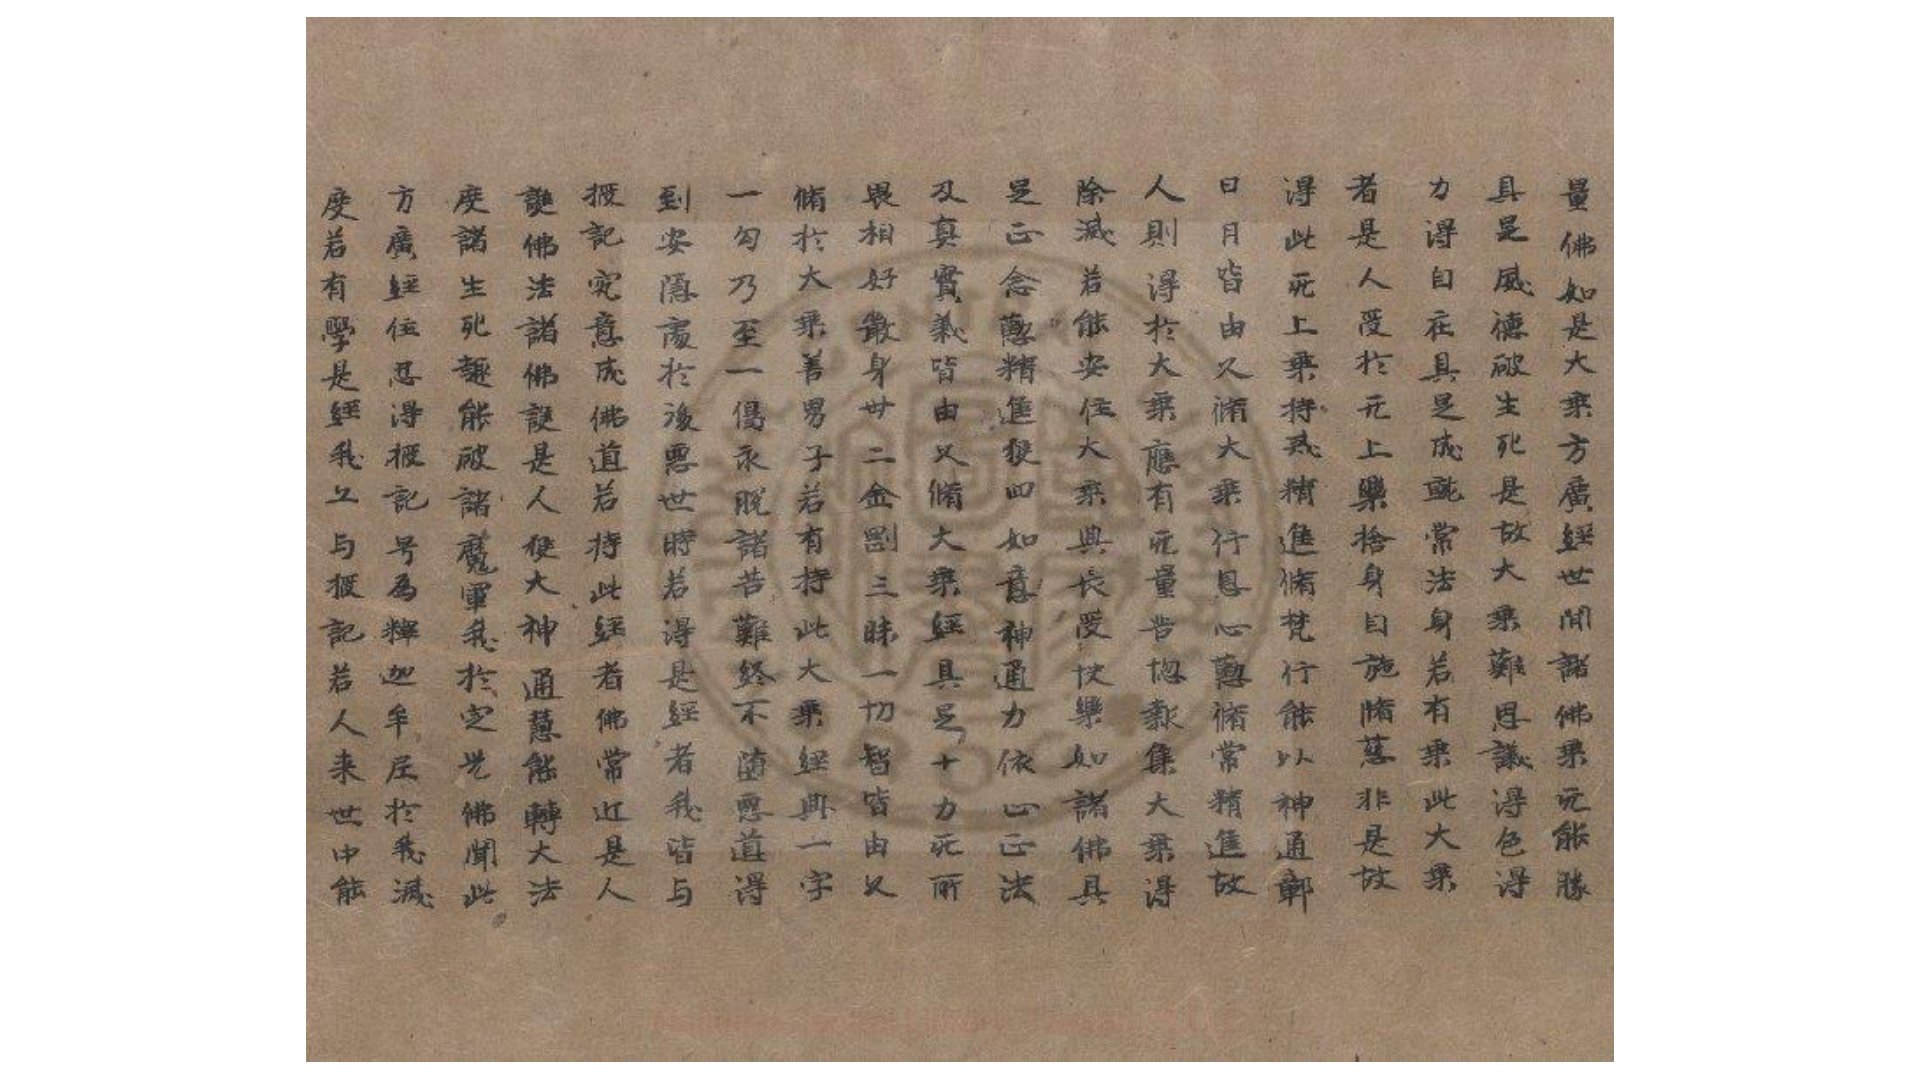 量佛如是大乘方廣經世間諸佛乘无能勝
具足威德破生死是故大乘難思議得色得
力得自在具足成就常法身若有乘此大乘
者是人受於无上樂捨身自施脩慈非是故
得此无上乘持戒精進脩梵行能以神通鄣
日月皆由久脩大乘行恩心懃脩常精進故
人則得於大乘應有无量苦惱聚集大乘得
除滅若能安住大乘典長受快樂如諸佛具
足正念懃精進獲四如意神通力依止正法
及真實義皆由久脩大乘經具足十力无所
畏相好微身卅二金剛三昧一切智皆由久
脩於大乘善男子若有持此大乘經典一字
一句乃至一偈永脫諸苦難終不墮惡道得
到安隱處於後惡世時若得是經者我皆与
授記究意成佛道若持此經者佛常近是人
護佛法諸佛護是人獲大神通慧能轉大法
度諸生死趣能破諸魔軍我於定光佛聞此
方廣經住忍得授記号為釋迦牟尼於我滅
度若有學是經我亦与授記若人来世中能